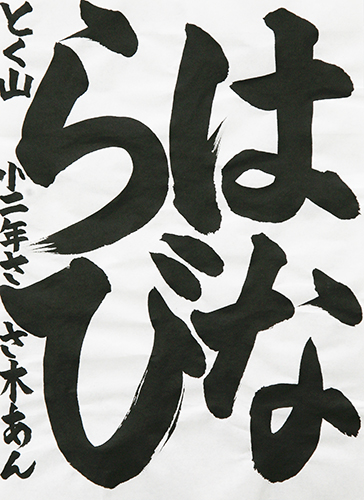 はな
らび
とく山 小二年ささ木あん